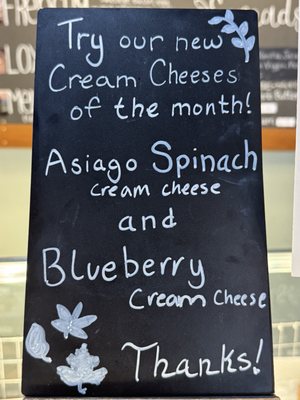 Try our new
Cream Cheeses
of the month!
Asiago Spinach
cream cheese
and
Blueberry
Cream Cheese
Thanks!